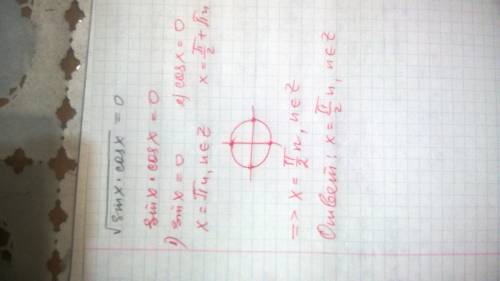 √sinx·cosx = 0
sinx·cosx = 0
1) sinx = 0 2) cosx = 0
x = πn, n∈Z x = π/2 + πn
=> x = π/2 n, n∈Z
Ответ: x = π/2 n, n∈Z